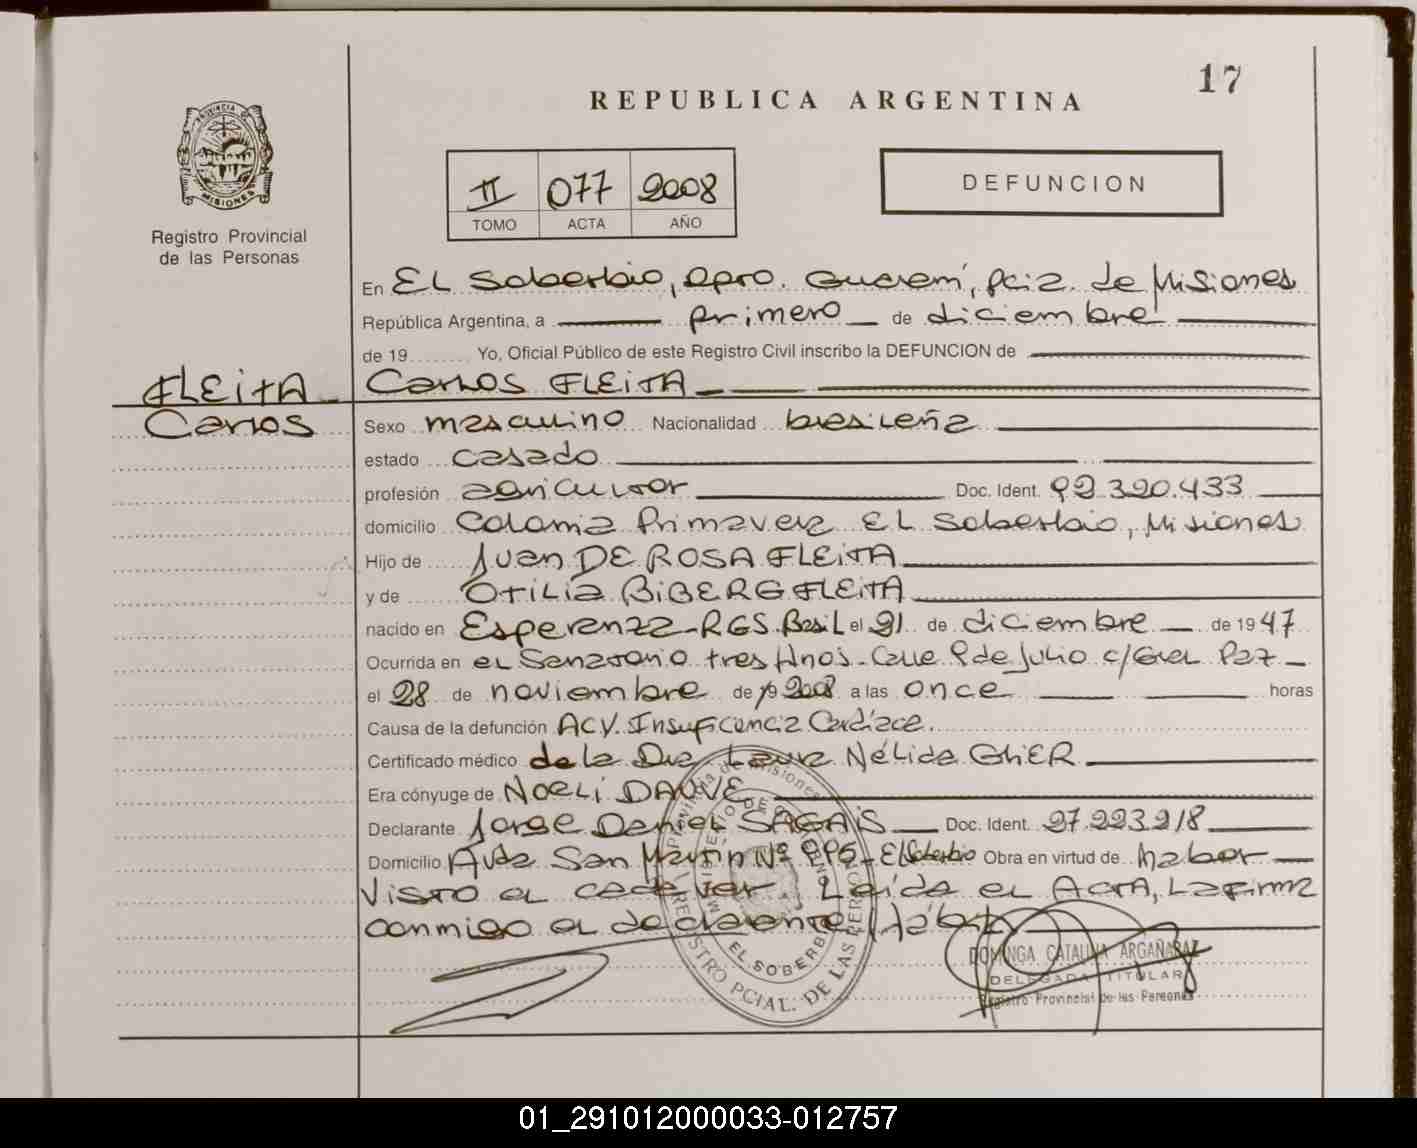 17
REPUBLICA ARGENTINA
PROVINCIA DE MISIONES
Registro Provincial
de las Personas
II 077 2008
TOMO ACTA AÑO
DEFUNCION
En EL Soberbio, Dpto. Guaraní, pcia. de Misiones
República Argentina, a primero de diciembre
de 19 Yo, Oficial Público de este Registro Civil inscribo la DEFUNCION de
FLEITA
Carlos
Carlos FLEITA
Sexo masculino Nacionalidad brasileña
estado casado
profesión agricultor Doc. Ident. 92.320.433
domicilio Colonia Primavera EL Soberbio, Misiones
Hijo de Juan DE ROSA FLEITA
y de OTILIA BIBERG FLEITA
nacido en Esperanza - RGS. Brasil el 21 de diciembre de 1947
Ocurrida en el Sanatorio tres Calle 9 de Julio c/Gral Paz
el 28 de noviembre de 19 2008 a las once horas
Causa de la defunción ACV. Insuficencia Cardíaca.
Certificado médico de la Dra Laura Nélida GHIER
Era cónyuge de NOELI
Declarante Jorge Daniel SAGAIS Doc. Ident. 27.223.218
Domicilio Avda San Martín Nº 995 - El Soberbio Obra en virtud de haber
visto el cadaver Leída el Acta, La firma
conmigo el declarante
Provincia de Misiones
MINISTERIO DE GOBIERNO
EL SOBERBIO
REGISTRO PCIAL. DE LAS PERSONAS
DOMINGA CATALINA ARGAÑARAZ
DELEGADA TITULAR
Registro Provincial de las Personas
01_291012000033-012757